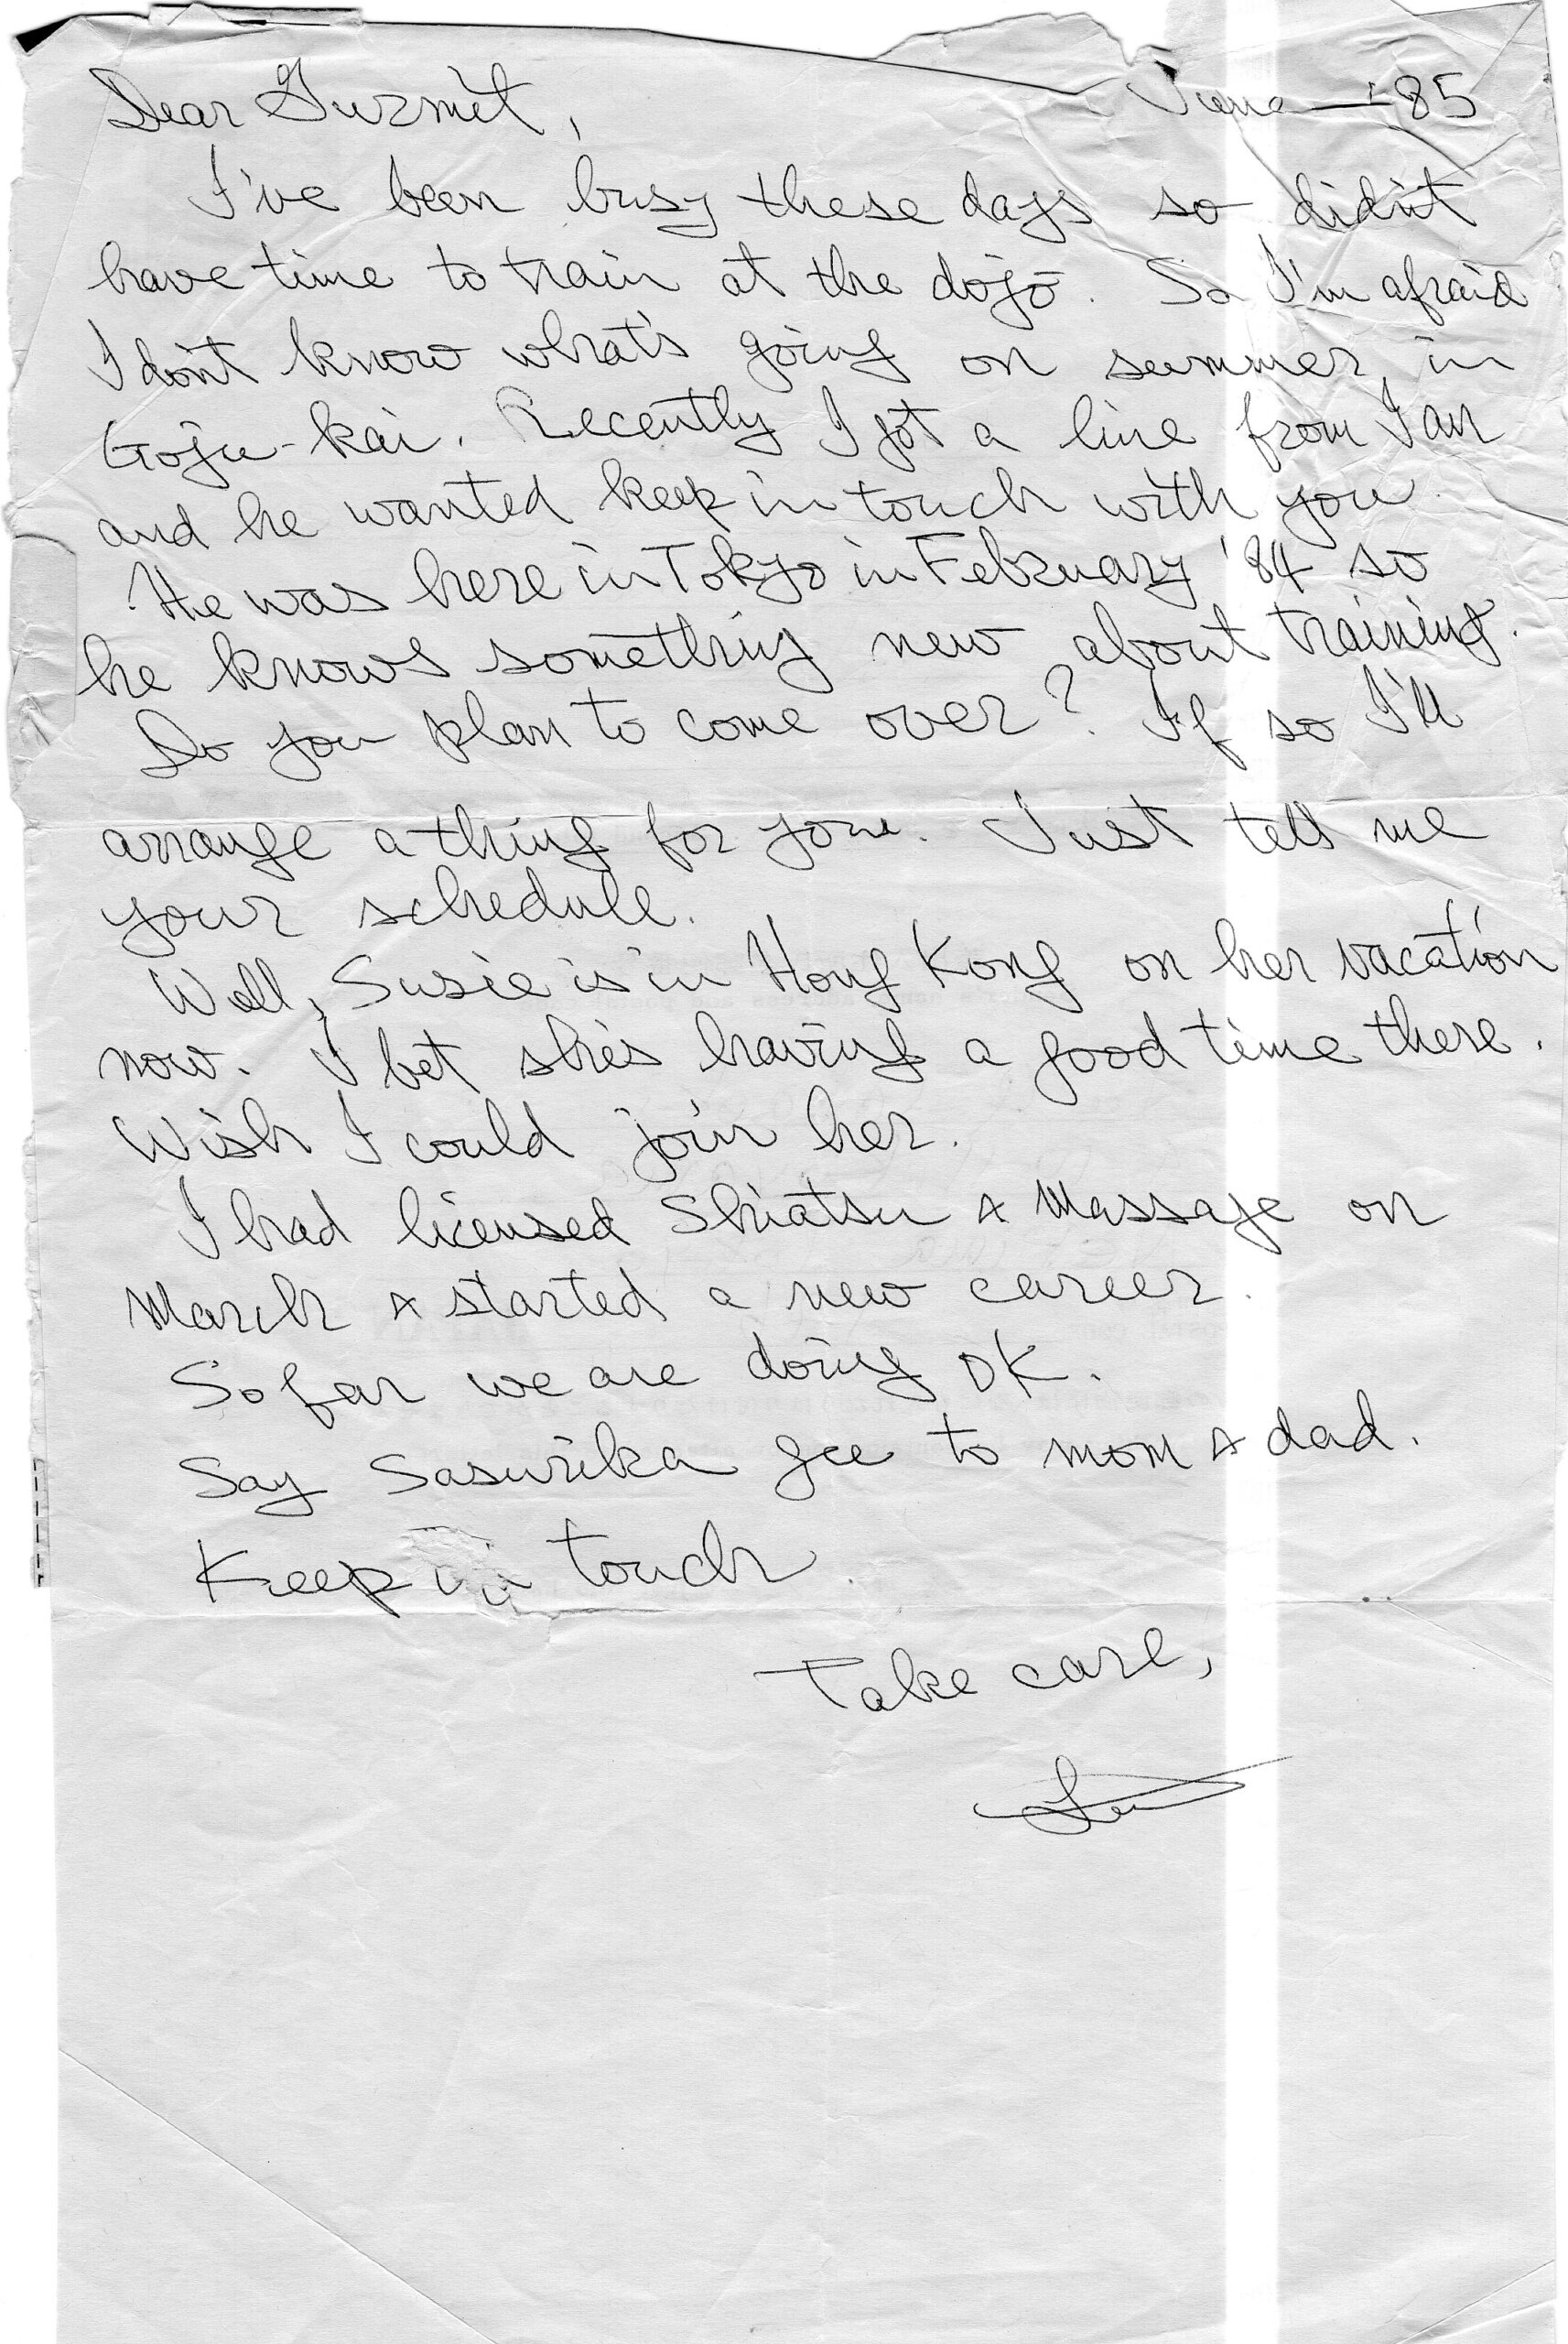 Dear Gurmit, June — '85
I've been busy these days so didn't
have time to train at the dojo. So I'm afraid
I don't know what's going on summer in
Goju-kai. Recently I got a line from Ian
and he wanted keep in touch with you.
He was here in Tokyo in February '84 so
he knows something new about training.
Do you plan to come over? If so I'll
arrange a thing for you. Just tell me
your schedule.
Well, Susie is in Hong Kong on her vacation
now. I bet she's having a good time there.
Wish I could join her.
I had licensed Shiatsu & Massage on
March & started a new career.
So far we are doing OK.
Say Sasurika gee to mom & dad.
Keep in touch.
Take care,